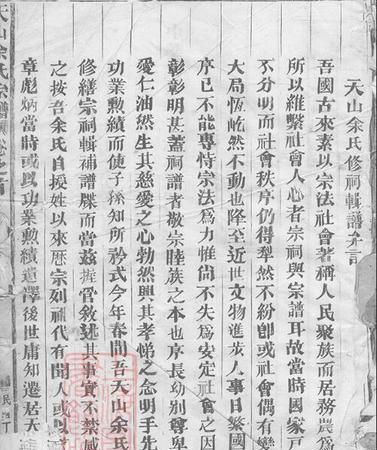 天山余氏修祠輯譜弁言
吾國古來素以宗法社會著稱人民聚族而居務農為
所以維繫社會人心者宗祠與宗譜耳故當時國家戶
不分明而社會秩序仍得犁然不紛卽或社會偶有變
大局恆屹然不動也降至近世文物進步人事日繁國
序已不能專恃宗法為力惟尙不失為安定社會之因
彰彰明甚蓋祠譜者敬宗睦族之本也序長幼別尊卑
愛仁油然生其慈愛之心勃然興其孝悌之念明乎先
功業勳績而使子孫知所矜式今年春間吾天山余氏
修繕宗祠輯補譜牒而當茲握管敘述其事實不禁感
之按吾余氏自授姓以來歷宗列祖代有聞人或以
章彪炳當時或以功業勳績遺澤後世庸知遷居天
天山余氏宗譜
民